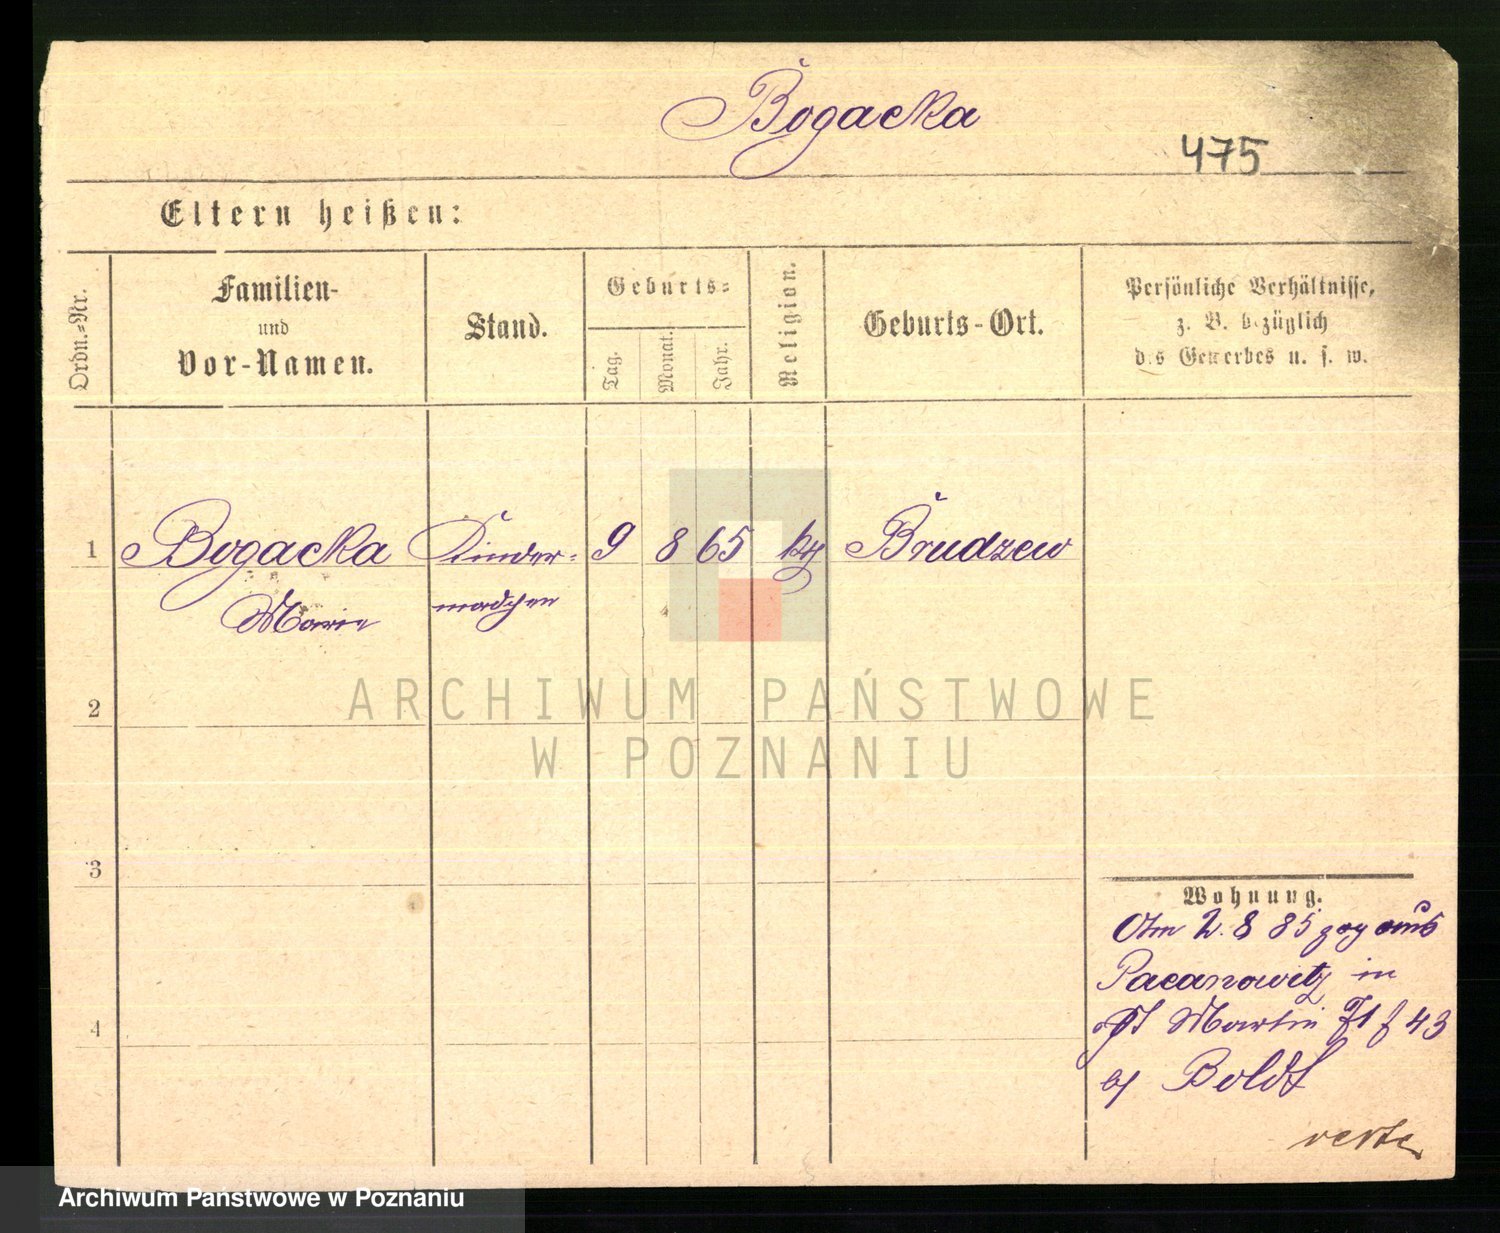 Bogacka
475
Eltern heißen:
Ordn.=Nr.
Familien-
und
Vor-Namen.
Stand.
Geburts=
Tag.
Monat.
Jahr.
Religion.
Geburts-Ort.
Persönliche Verhältnisse,
z. B. bezüglich
des Gewerbes u. s. w.
1 Bogacka Kinder= 9 8 65 kth Brudzew
Marie madchen
2
3
4
Wohnung.
Am 2. 8 85 zog aus
Pacanowitz in
St Martin 71 f 43
bj Boldt
verte
ARCHIWUM PAŃSTWOWE
W POZNANIU
Archiwum Państwowe w Poznaniu